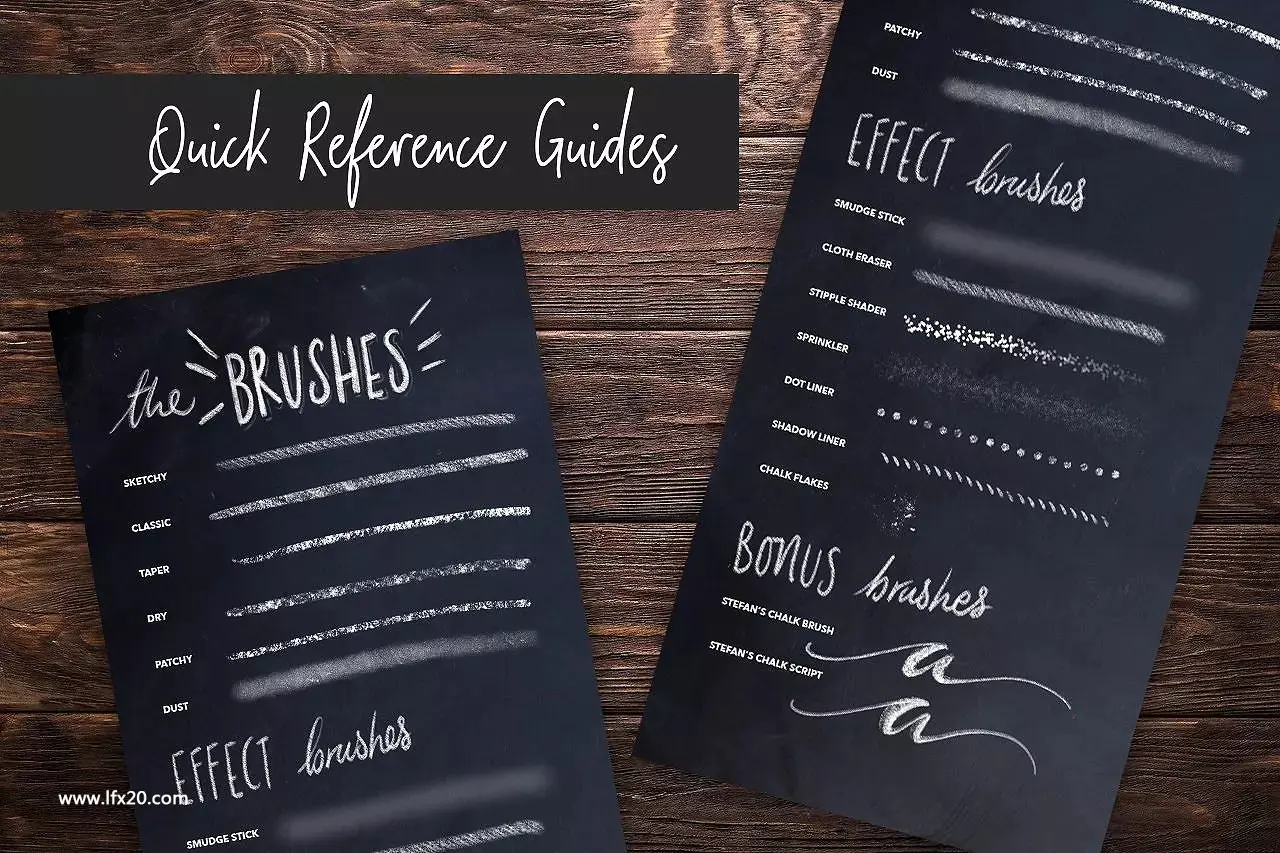 Quick Reference Guides
the BRUSHES
SKETCHY
CLASSIC
TAPER
DRY
PATCHY
DUST
EFFECT brushes
SMUDGE STICK
www.lfx20.com
PATCHY
DUST
EFFECT brushes
SMUDGE STICK
CLOTH ERASER
STIPPLE SHADER
SPRINKLER
DOT LINER
SHADOW LINER
CHALK FLAKES
BONUS brushes
STEFAN'S CHALK BRUSH
a
STEFAN'S CHALK SCRIPT
a